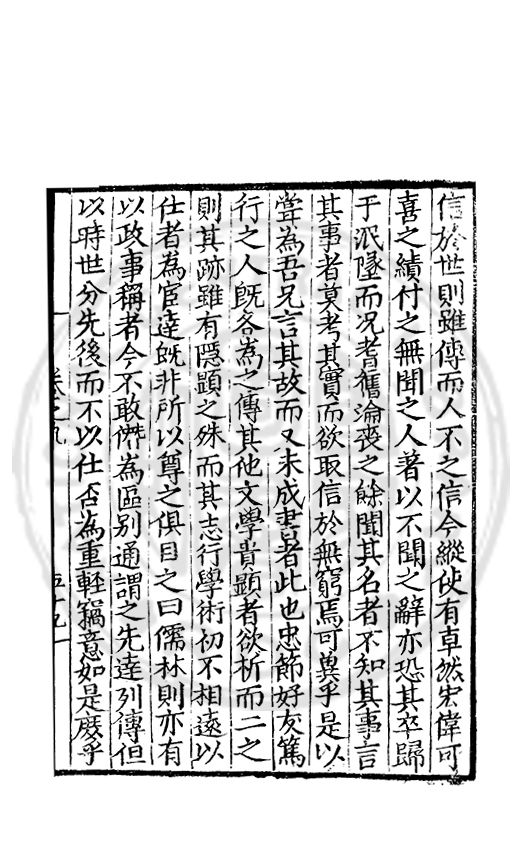 信於世則雖傳而人不之信今縱使有卓然宏偉可
喜之績付之無聞之人著以不聞之辭亦恐其卒歸
于泯墜而况耆舊淪喪之餘聞其名者不知其事言
其事者莫考其實而欲取信於無窮焉可兾乎是以
甞為吾兄言其故而又未成書者此也忠節好友篤
行之人旣各為之傳其他文學貴顯者欲析而二之
則其跡雖有隱顯之殊而其志行學術初不相遠以
仕者為宦達旣非所以尊之俱目之曰儒林則亦有
以政事稱者今不敢傑為區別通謂之先達列傳但
以時世分先後而不以仕否為重輕竊意如是庻乎
卷之九
五十九